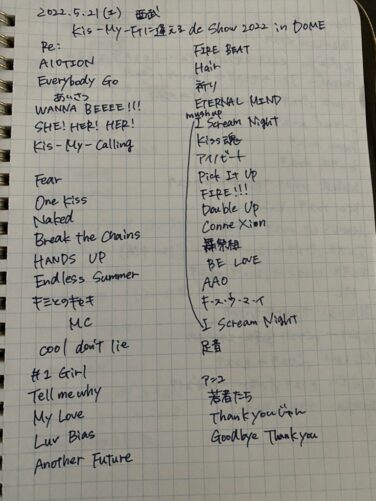 2022.5.21(土) 西武
Kis-My-Ftに逢える de Show 2022 in DOME
Re:
A10TION
Everybody Go
あいさつ
WANNA BEEEE!!!
SHE! HER! HER!
Kis-My-Calling
Fear
One Kiss
Naked
Break the Chains
HANDS UP
Endless Summer
キミとのキセキ
MC
cool don't lie
#1 Girl
Tell me why
My Love
Luv Bias
Another Future
FIRE BEAT
Hair
祈り
ETERNAL MIND
mushup
I Scream Night
Kiss魂
アイノビート
Pick It Up
FIRE!!!
Double Up
ConneXion
BE LOVE
AAO
キ・ス・ウ・マ・イ
I Scream Night
足音
アンコ
若者たち
Thank youじゃん
Goodbye Thank you